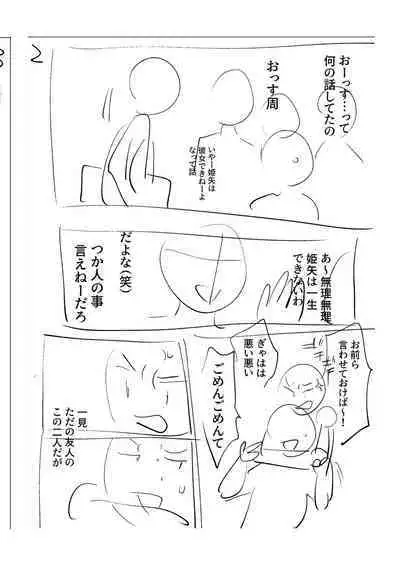 2
おーっす…って
何の話してたの
おっす周
いやー姫矢は
彼女できねーよ
なって話
あ〜無理無理
姫矢は一生
できないわ
だよな(笑)
つか人の事
言えねーだろ
お前ら
言わせておけば〜!
ぎゃはは
悪い悪い
ごめんごめんて
一見…
ただの友人の
この二人だが